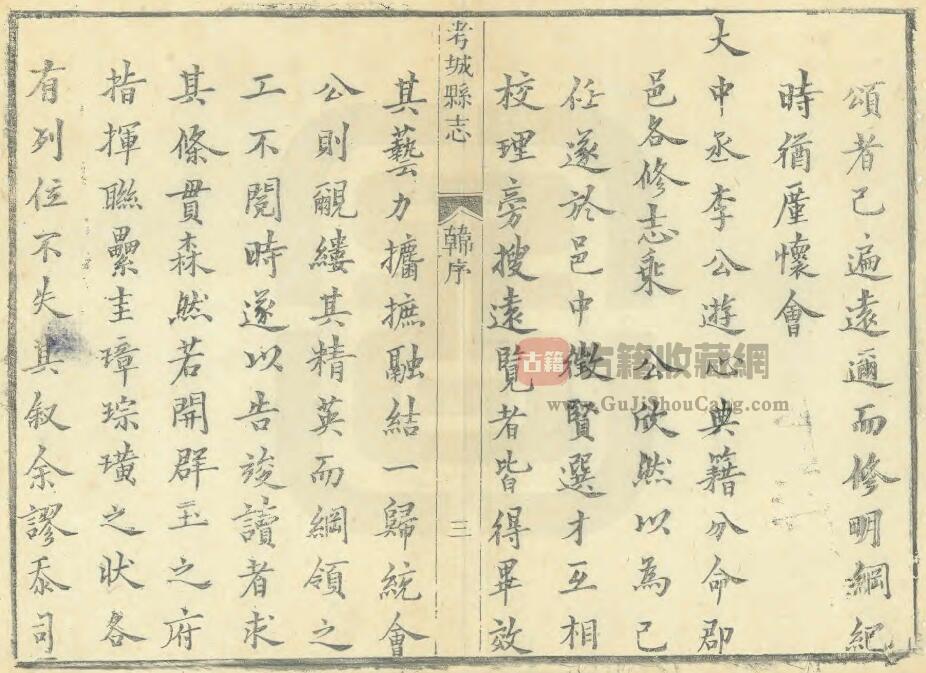 頌者已遍遠邇而修明綱紀
時猶廑懷會
大中丞李公遊心典籍分命郡
邑各修志乘　公欣然以為己
任遂於邑中徵賢選才互相
校理旁搜遠覽者皆得畢效
考城縣志
韓序
三
其藝力攟摭融結一歸統會
公則覼縷其精英而綱領之
工不閱時遂以告竣讀者求
其條貫森然若開群玉之府
指揮聯纍圭璋琮璜之狀各
有列位不失其叙余謬忝司
古籍
古籍收藏網
www.GuJiShouCang.com